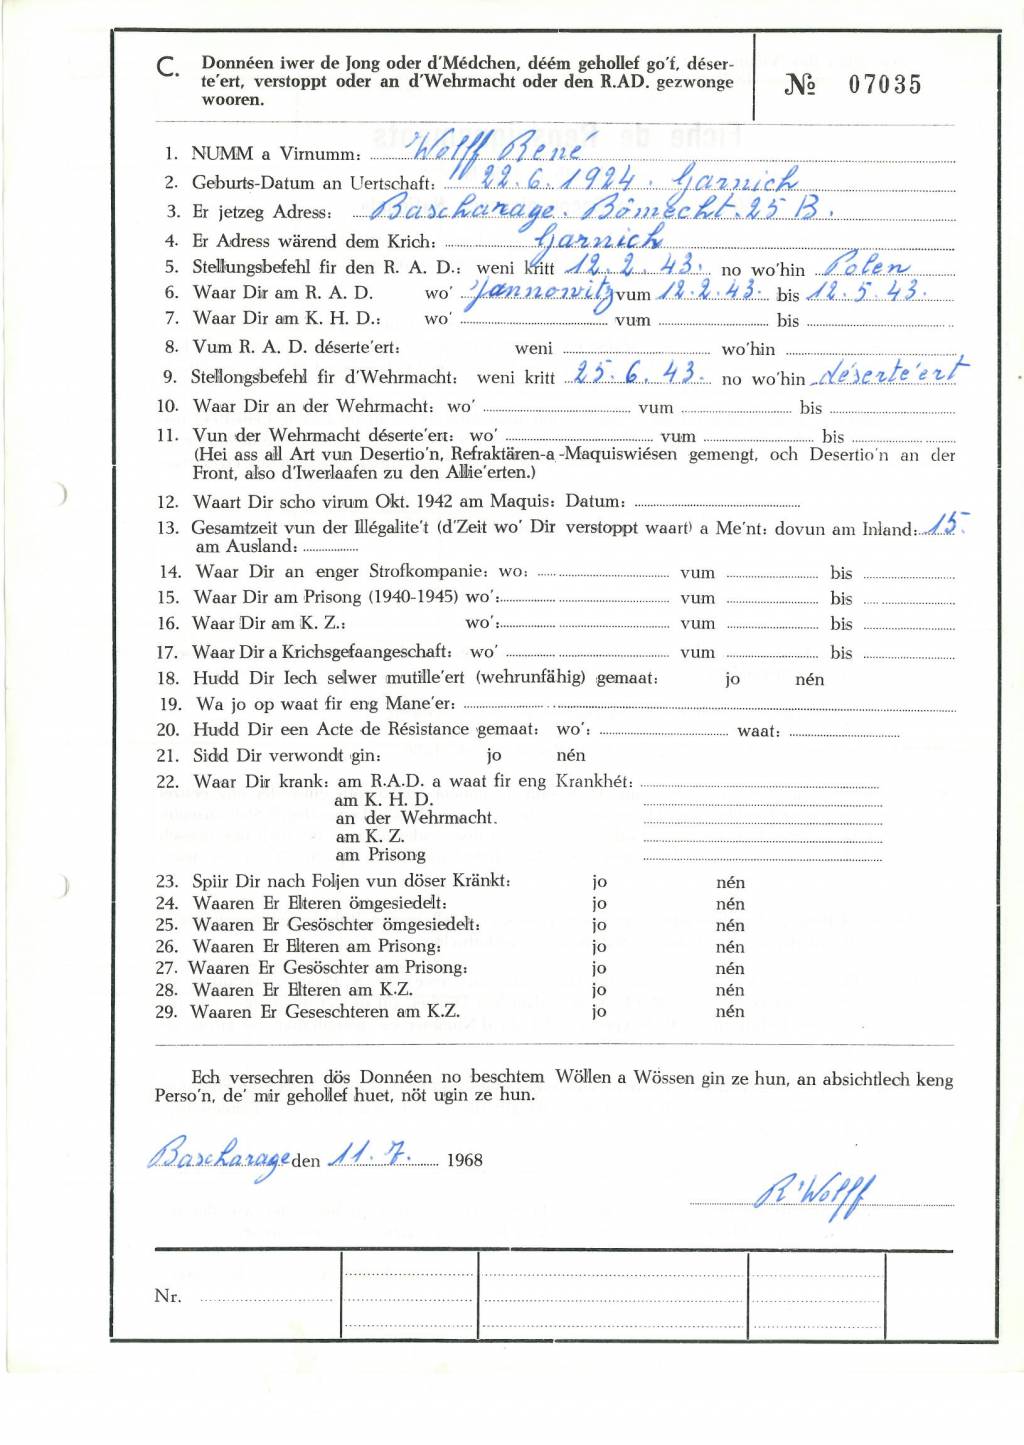 C. Donnéen iwer de Jong oder d'Médchen, déém gehollef go'f, déser-
te'ert, verstoppt oder an d'Wehrmacht oder den R.AD. gezwonge
wooren.
№ 07035
1. NUMM a Virnumm: Wolff René
2. Geburts-Datum an Uertschaft: 22.6.1924. Garnich
3. Er jetzeg Adress: Bascharage. Bômecht. 25 B.
4. Er Adress wärend dem Krich: Garnich
5. Stellungsbefehl fir den R. A. D.: weni kritt 12.2.43. no wo'hin Polen
6. Waar Dir am R. A. D. wo' Jannowitz vum 12.2.43. bis 12.5.43.
7. Waar Dir am K. H. D.: wo' vum bis
8. Vum R. A. D. déserte'ert: weni wo'hin
9. Stellongsbefehl fir d'Wehrmacht: weni kritt 25.6.43. no wo'hin déserte'ert
10. Waar Dir an der Wehrmacht: wo' vum bis
11. Vun der Wehrmacht déserte'ert: wo' vum bis
(Hei ass all Art vun Desertio'n, Refraktären-a -Maquiswiésen gemengt, och Desertio'n an der
Front, also d'Iwerlaafen zu den Allie'erten.)
12. Waart Dir scho virum Okt. 1942 am Maquis: Datum:
13. Gesamtzeit vun der Illégalite't (d'Zeit wo' Dir verstoppt waart) a Me'nt: dovun am Inland: 15.
am Ausland:
14. Waar Dir an enger Strofkompanie: wo: vum bis
15. Waar Dir am Prisong (1940-1945) wo': vum bis
16. Waar Dir am K. Z.: wo': vum bis
17. Waar Dir a Krichsgefaangeschaft: wo' vum bis
18. Hudd Dir Iech selwer mutille'ert (wehrunfähig) gemaat: jo nén
19. Wa jo op waat fir eng Mane'er:
20. Hudd Dir een Acte de Résistance gemaat: wo': waat:
21. Sidd Dir verwondt gin: jo nén
22. Waar Dir krank: am R.A.D. a waat fir eng Krankhét:
am K. H. D.
an der Wehrmacht.
am K. Z.
am Prisong
23. Spiir Dir nach Foljen vun döser Kränkt: jo nén
24. Waaren Er Elteren ömgesiedelt: jo nén
25. Waaren Er Gesöschter ömgesiedelt: jo nén
26. Waaren Er Elteren am Prisong: jo nén
27. Waaren Er Gesöschter am Prisong: jo nén
28. Waaren Er Elteren am K.Z. jo nén
29. Waaren Er Geseschteren am K.Z. jo nén
Ech versechren dös Donnéen no beschtem Wöllen a Wössen gin ze hun, an absichtlech keng
Perso'n, de' mir gehollef huet, nöt ugin ze hun.
Bascharage den 11.7. 1968
R. Wolff
Nr.